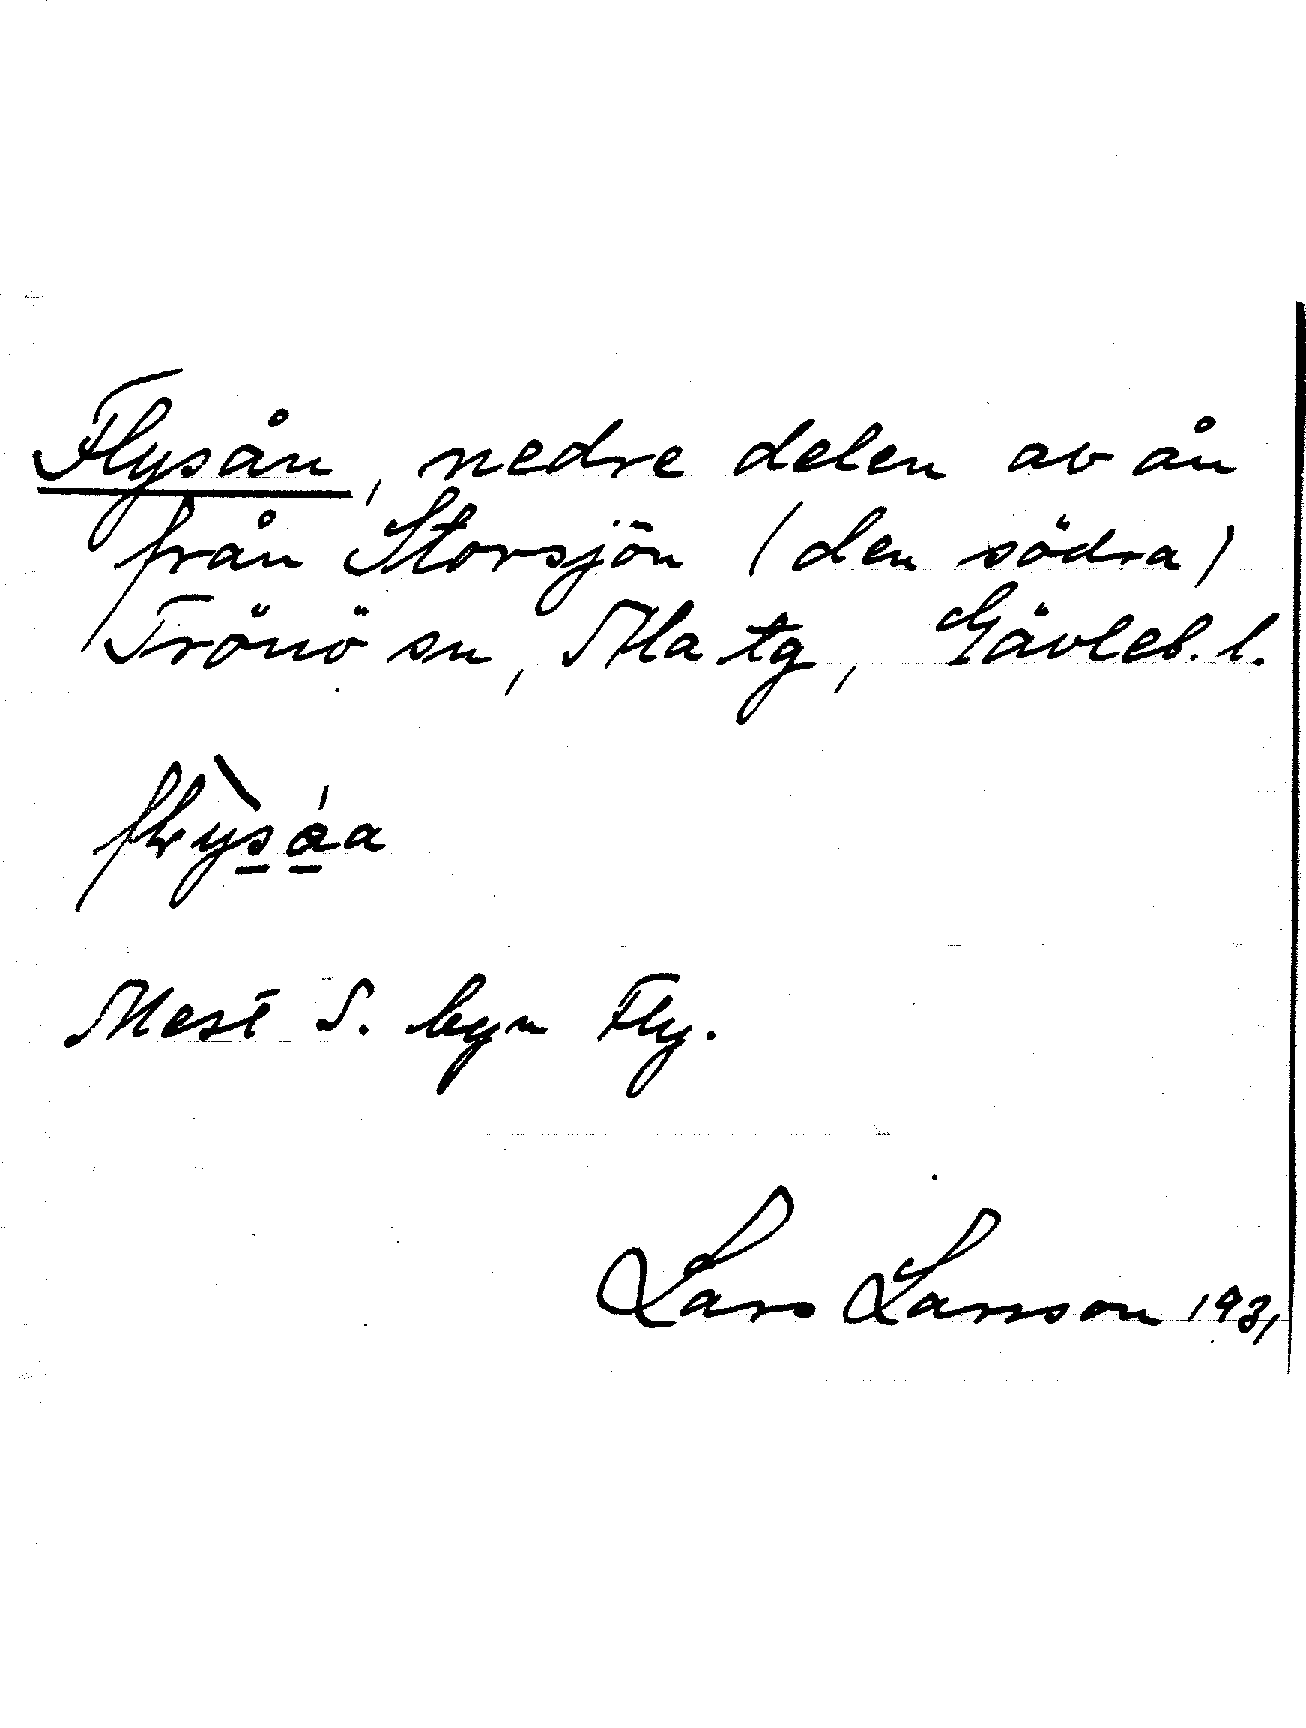 Flysån, nedre delen av ån
från Storsjön (den södra)
Trönö sn, Ala tg, Gävleb. l.
Mest S. byn Fly.
Lars Larsson 1931